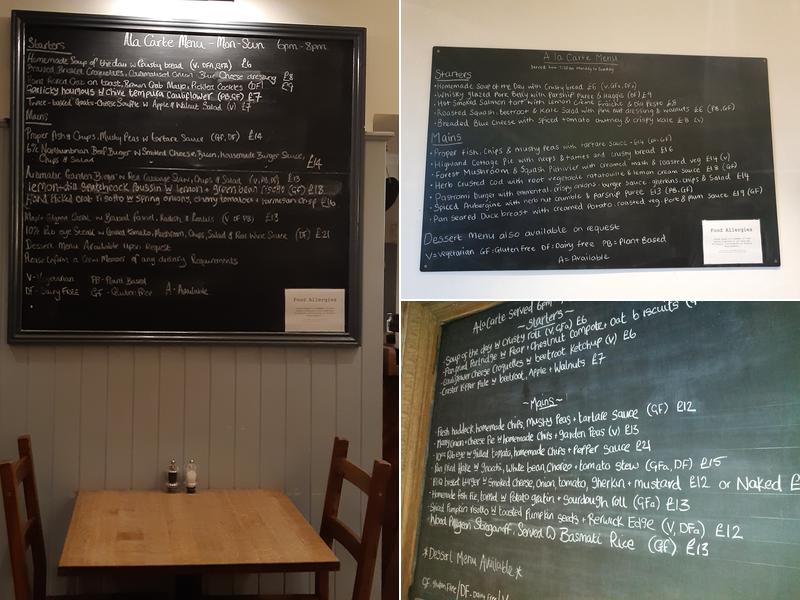 Ala Carte Menu - Mon-Sun 6pm-8pm
Starters
Homemade Soup of the day w Crusty bread (V, DFA, GFA) £6
Braised Brisket Croquettes, Caramelised Onion Blue Cheese dressing £8
on toast, Brown Crab Mayo, Pickled Cockles (DF) £9
Garlicky houmous w Chive tempura Cauliflower (PB, GF) £7
Twice-baked Goats Cheese Souffle w Apple & Walnut Salad (V) £7
Mains
Proper Fish & Chips, Mushy Peas w tartare Sauce (GF, DF) £14
6oz Northumbrian Beef Burger w Smoked Cheese, Bacon, homemade Burger Sauce,
Chips & Salad £14
Aromatic Garden Burger w Red Cabbage Slaw, Chips & Salad £13
lemon-dill Spatchcock Poussin w lemon + green bean risotto (GF) £18
Hand Picked crab risotto w Spring onions, cherry tomatoes + Parmesan crisp £16
10oz Rib eye Steak w Grilled tomato, Mushroom, Chips, Salad & Red Wine Sauce (DF) £21
Dessert Menu Available Upon Request
Please inform a Crew Member of any dietary Requirements
V-Vegetarian PB-Plant Based
DF-Dairy FREE GF-Gluten Free A-Available
Food Allergies
A la Carte Menu
Starters
• Homemade Soup of the Day with Crusty bread £6 (V, GFa, DFa)
• Whisky Glazed Pork Belly with Parsnip Puree & Haggis (DF) £9
• Hot Smoked Salmon tart with Lemon Crème Fraîche & Dill Pesto £8
• Roasted Squash, Beetroot & Kale Salad with dressing & walnuts £6 (PB, GF)
• Breaded Blue Cheese with Spiced tomato chutney & crispy kale £8 (V)
Mains
• Proper Fish, Chips & mushy peas with tartare sauce - £14 (DF, GF)
• Highland Cottage Pie with neeps & tatties and crusty bread £16
• Forest Mushroom & Squash Pithivier with creamed mash & roasted veg £14 (V)
• Herb Crusted Cod with root vegetable ratatouille & lemon cream sauce £18 (GF)
• Pastrami Burger with emmental, crispy onions, burger sauce, gherkins, chips & Salad £14
• Spiced Aubergine with herb nut crumble & parsnip puree £13 (PB, GF)
• Pan Seared Duck breast with creamed potato, roasted veg, Port & plum sauce £19 (GF)
Dessert menu also available on request
V=Vegetarian GF=Gluten Free DF=Dairy free PB=Plant Based
A=Available
Food Allergies
A la Carte served 6pm
~Starters~
• Soup of the day w Crusty roll (V, GFa) £6
• Pan fried Partridge w Pear + Chestnut Compote, + Oat biscuits
• Cauliflower Cheese Croquettes w beetroot Ketchup (V) £6
• Craster Kipper Pate w beetroot, Apple + Walnuts £7
~Mains~
• Fresh haddock, homemade chips, Mushy Peas + tartare Sauce (GF) £12
onion + cheese Pie w homemade Chips + garden Peas (V) £13
• 10oz Rib eye w grilled tomato, homemade chips + Pepper Sauce £21
• Pan fried Hake w gnocchi, White bean, Chorizo + tomato stew (GFa, DF) £15
• brisket burger w Smoked cheese, Onion, tomato, gherkin + mustard £12 or Naked £
• Homemade fish Pie, topped w Potato gratin + Sourdough roll (GFa) £13
• Spiced Pumpkin risotto w toasted Pumpkin seeds + Berwick Edge (V, DFa) £12
• Wood Pidgeon Stroganoff, Served w Basmati Rice (GF) £13
*Dessert Menu Available*